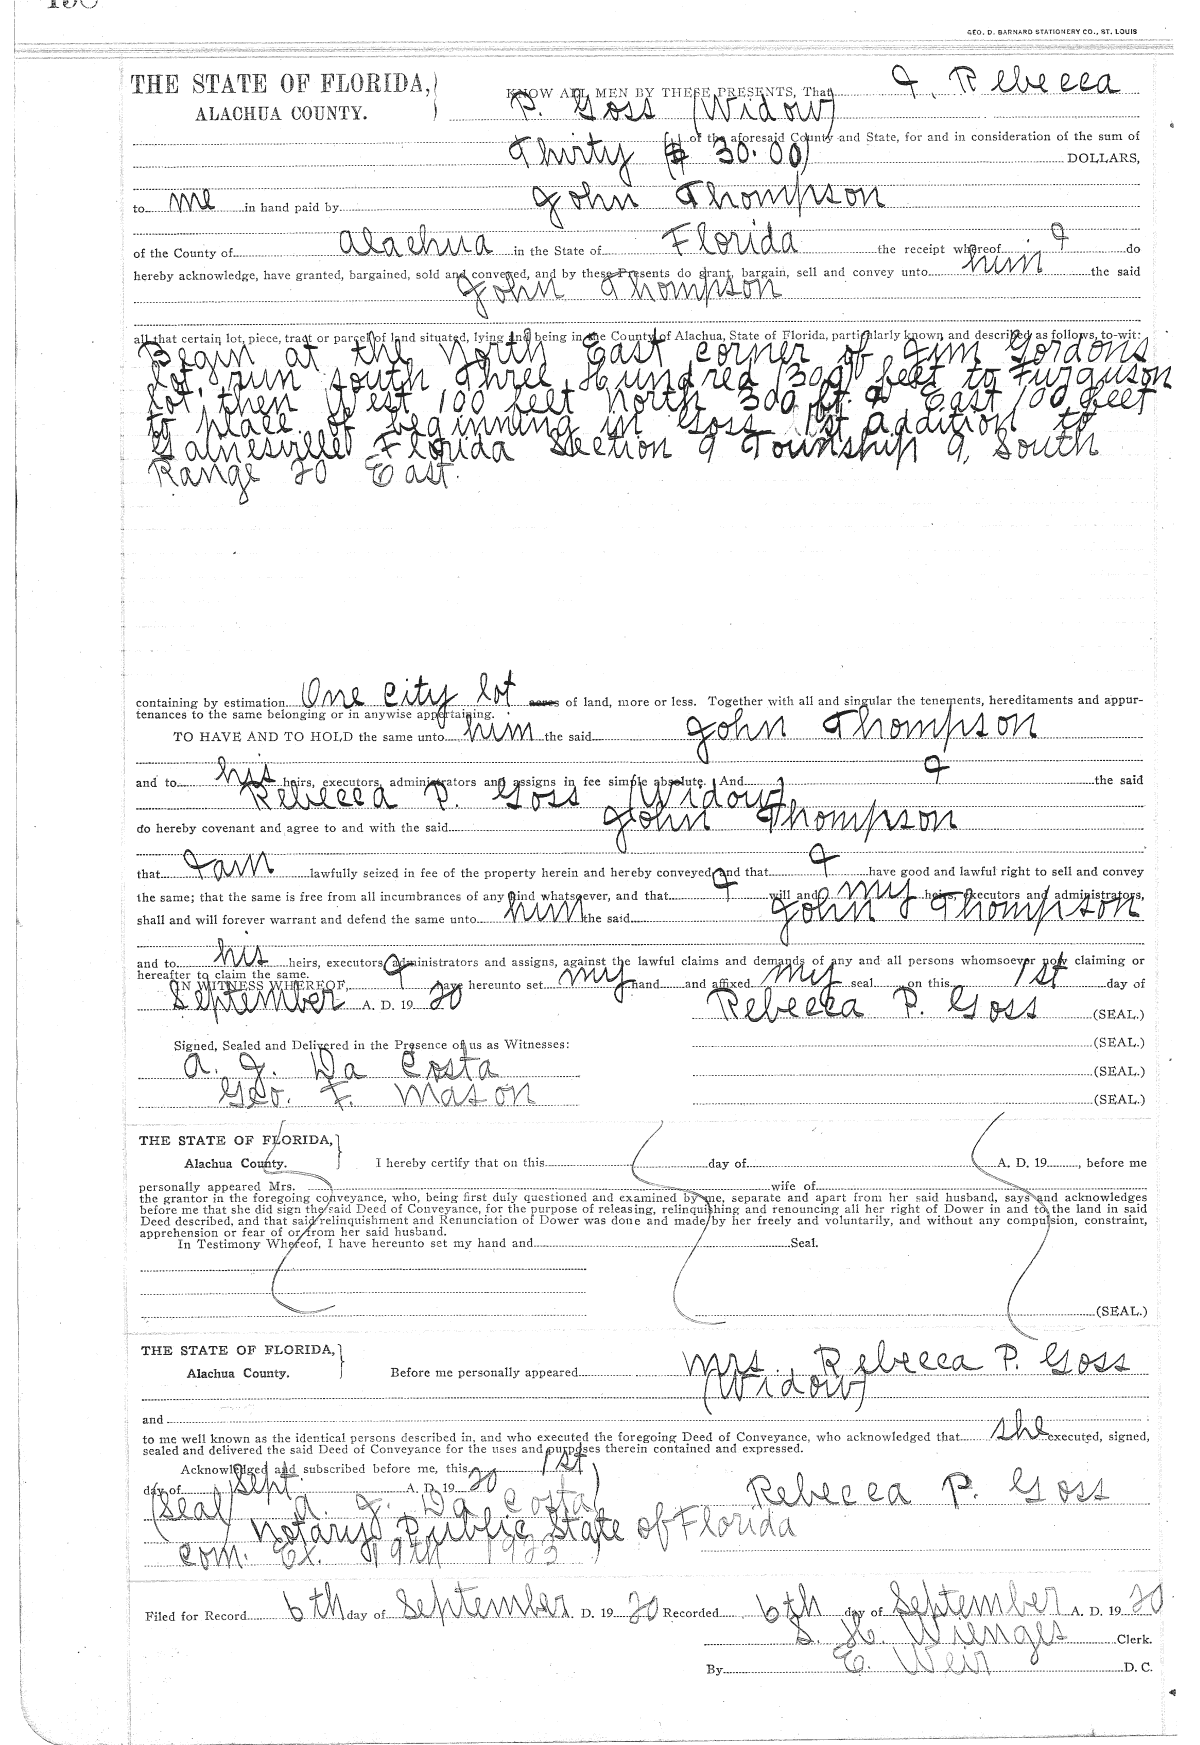 GEO. D. BARNARD STATIONERY CO., ST. LOUIS
THE STATE OF FLORIDA,
ALACHUA COUNTY.
KNOW ALL MEN BY THESE PRESENTS, That I, Rebecca
P. Goss (Widow)
of the aforesaid County and State, for and in consideration of the sum of
Thirty ($ 30.00) DOLLARS,
to me in hand paid by John Thompson
of the County of Alachua in the State of Florida the receipt whereof I do
hereby acknowledge, have granted, bargained, sold and conveyed, and by these Presents do grant, bargain, sell and convey unto him the said
John Thompson
all that certain lot, piece, tract or parcel of land situated, lying and being in the County of Alachua, State of Florida, particularly known and described as follows, to-wit:
Begin at the North East corner of Jim Gordons
lot, run south Three Hundred (300) feet to Furguson
lot, then West 100 feet North 300 ft. & East 100 feet
to place of beginning in Goss 1st addition to
Gainesville Florida Section 9 Township 9, South
Range 20 East.
containing by estimation One city lot acres of land, more or less. Together with all and singular the tenements, hereditaments and appur-
tenances to the same belonging or in anywise appertaining.
TO HAVE AND TO HOLD the same unto him the said John Thompson
and to his heirs, executors, administrators and assigns in fee simple absolute. And I the said
Rebecca P. Goss (Widow)
do hereby covenant and agree to and with the said John Thompson
that I am lawfully seized in fee of the property herein and hereby conveyed and that I have good and lawful right to sell and convey
the same; that the same is free from all incumbrances of any kind whatsoever, and that I will and my heirs, executors and administrators,
shall and will forever warrant and defend the same unto him the said John Thompson
and to his heirs, executors, administrators and assigns, against the lawful claims and demands of any and all persons whomsoever now claiming or
hereafter to claim the same.
IN WITNESS WHEREOF, I have hereunto set my hand and affixed my seal on this 1st day of
September A. D. 19 20 Rebecca P. Goss (SEAL.)
Signed, Sealed and Delivered in the Presence of us as Witnesses: (SEAL.)
A. J. Da Costa (SEAL.)
Geo. F. Mason (SEAL.)
THE STATE OF FLORIDA,
Alachua County. I hereby certify that on this day of A. D. 19 , before me
personally appeared Mrs. wife of
the grantor in the foregoing conveyance, who, being first duly questioned and examined by me, separate and apart from her said husband, says and acknowledges
before me that she did sign the said Deed of Conveyance, for the purpose of releasing, relinquishing and renouncing all her right of Dower in and to the land in said
Deed described, and that said relinquishment and Renunciation of Dower was done and made by her freely and voluntarily, and without any compulsion, constraint,
apprehension or fear of or from her said husband.
In Testimony Whereof, I have hereunto set my hand and Seal.
(SEAL.)
THE STATE OF FLORIDA,
Alachua County. Before me personally appeared Mrs. Rebecca P. Goss
(Widow)
and
to me well known as the identical persons described in, and who executed the foregoing Deed of Conveyance, who acknowledged that she executed, signed,
sealed and delivered the said Deed of Conveyance for the uses and purposes therein contained and expressed.
Acknowledged and subscribed before me, this 1st
day of Sept. A. D. 19 20 Rebecca P. Goss
(Seal) A. J. Da Costa
Notary Public State of Florida
Com. Ex. 19th 1923
Filed for Record 6th day of September A. D. 19 20 Recorded 6th day of September A. D. 19 20
S. H. Wienges Clerk.
By E. Weir D. C.